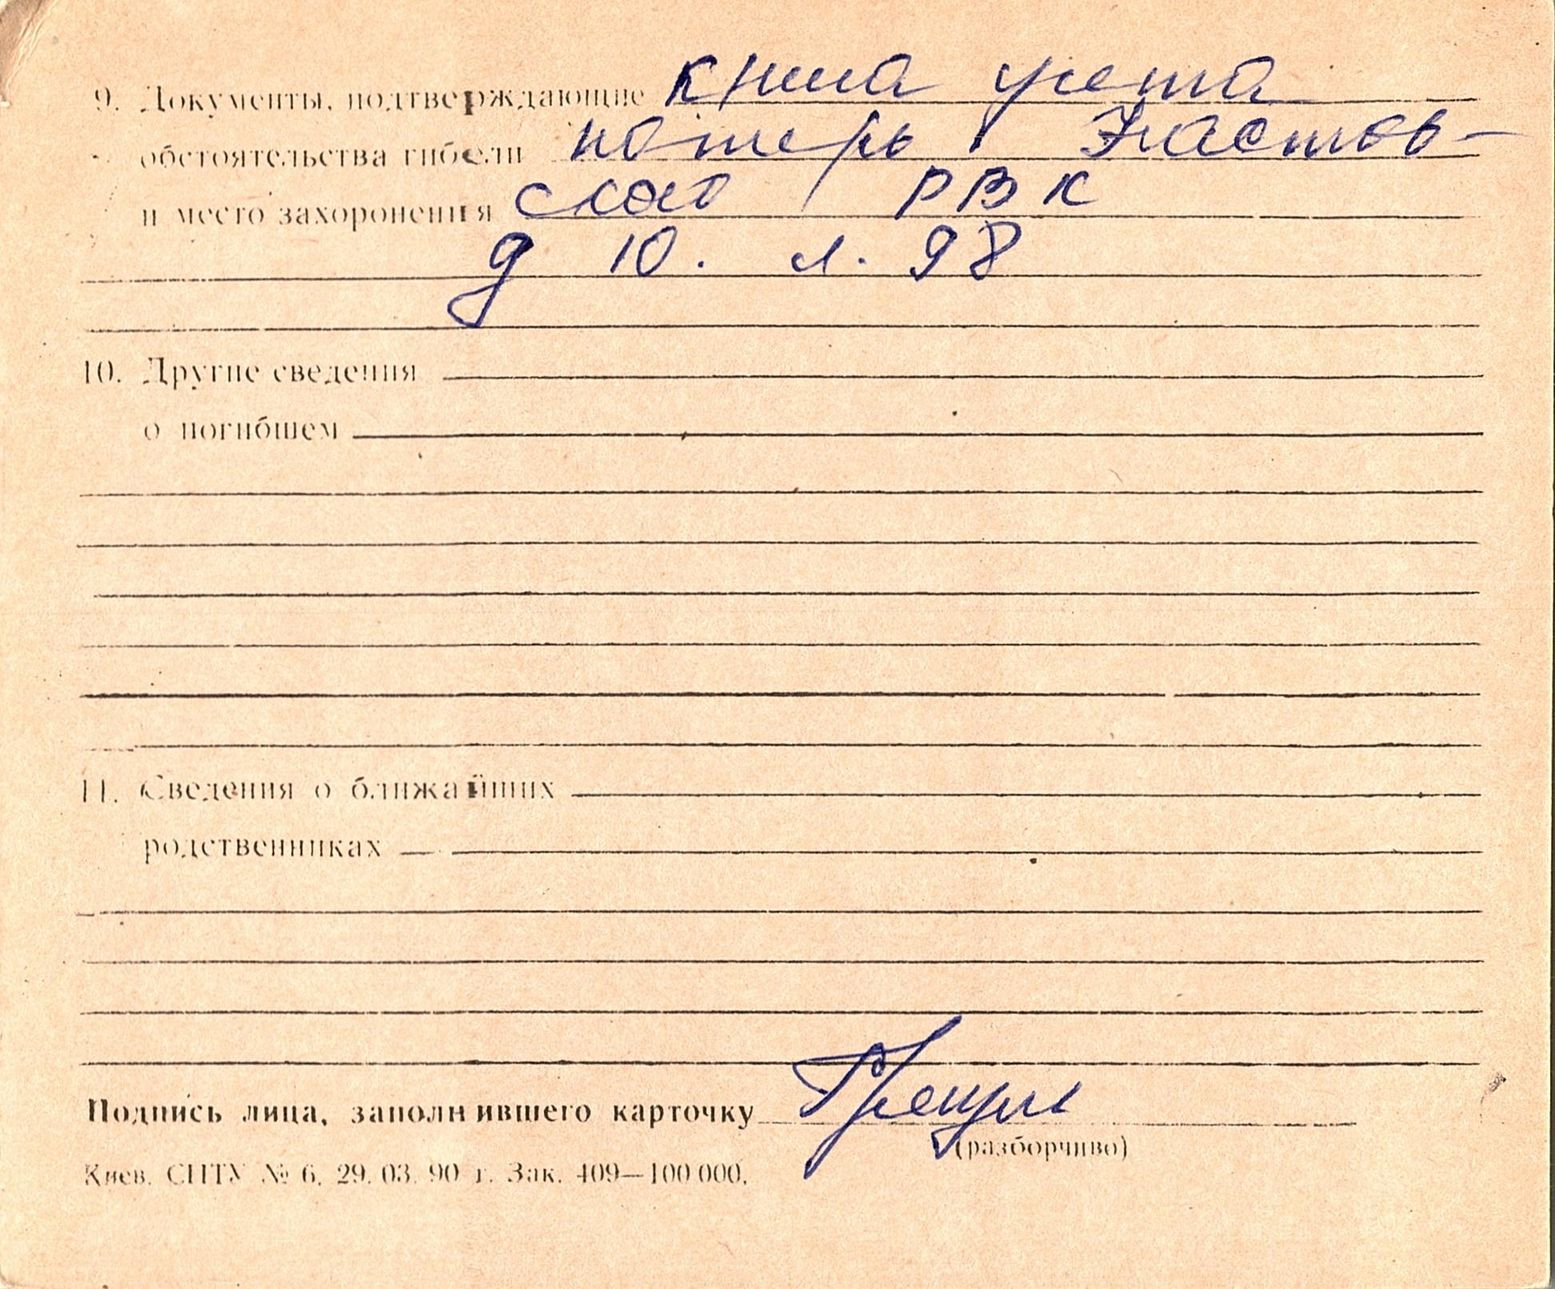 9. Документы, подтверждающие книга учета
обстоятельства гибели потерь
и место захоронения ского РВК
д 10. л. 98
10. Другие сведения
о погибшем
11. Сведения о ближайших
родственниках
Подпись лица, заполнившего карточку
(разборчиво)
Киев. СПТУ № 6. 29. 03. 90 г. Зак. 409—100 000.